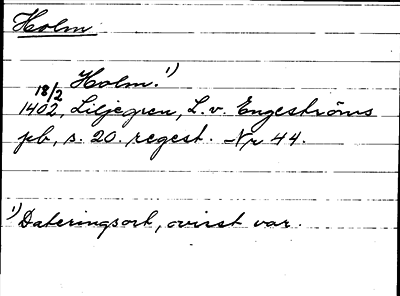 Holm
18/2 Holm.¹)
1402, Liljegren, L. v. Engeströms
pb, s. 20. regest. Nr 44.
¹) Dateringsort, ovisst var.